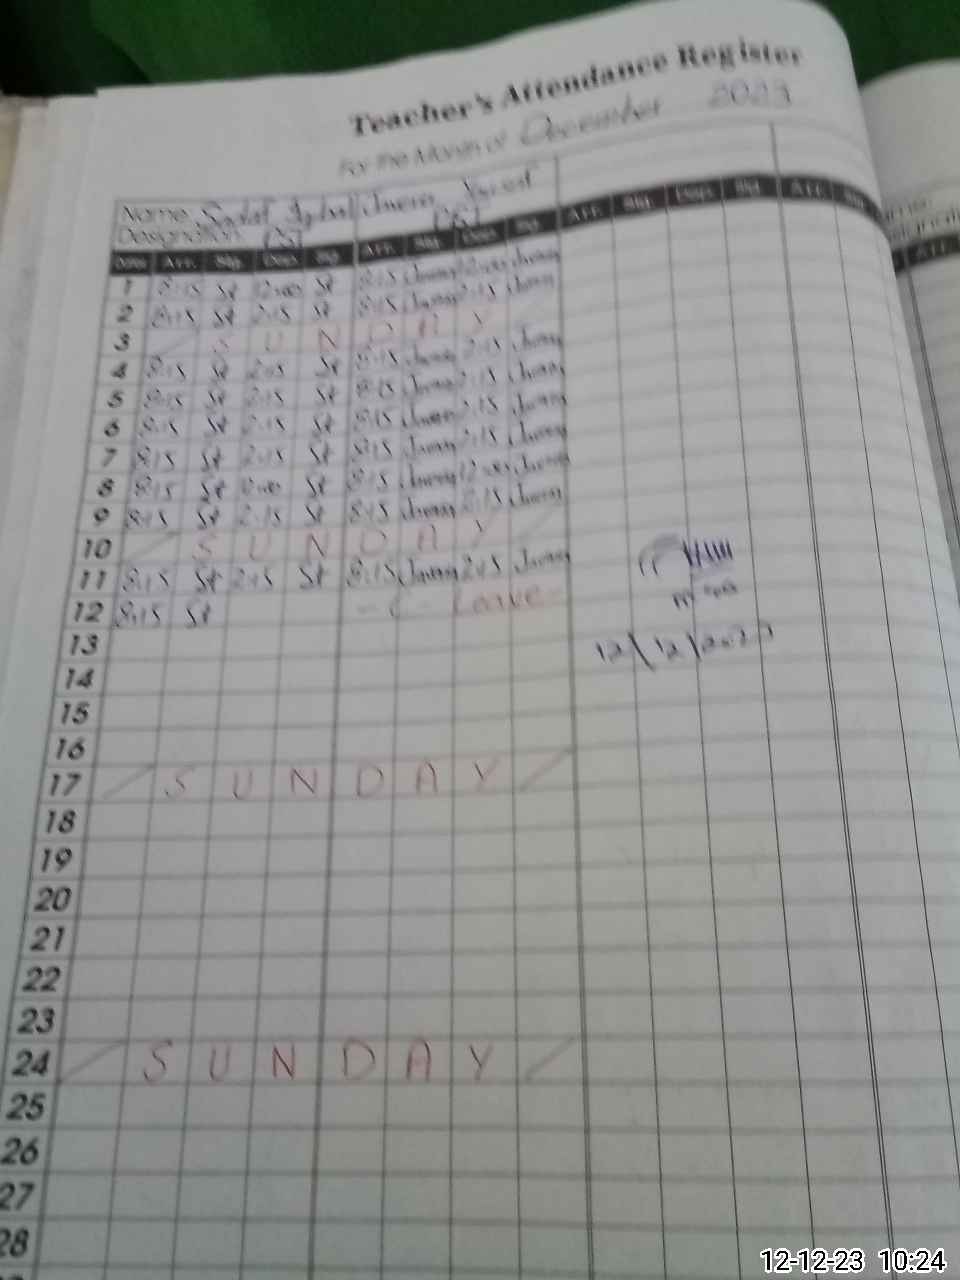 Teacher's Attendance Register
For the Month of December 2023
Name
Designation
Date Arr. Sig. Dep. Sig Arr. Sig. Dep. Sig. Arr. Sig. Dep. Sig. Arr. Sig.
1 8:15 St 12:00 St 8:15 12:00
2 8:15 St 2:15 St 8:15 2:15
3 SUNDAY
4 8:15 St 2:15 St 8:15 2:15
5 8:15 St 2:15 St 8:15 2:15
6 8:15 St 2:15 St 8:15 2:15
7 8:15 St 2:15 St 8:15 2:15
8 8:15 St 12:00 St 8:15 12:00
9 8:15 St 2:15 St 8:15 2:15
10 SUNDAY
11 8:15 St 2:15 St 8:15 2:15
12 8:15 St - C - Leave -
13 12/12/2023
14
15
16
17 SUNDAY
18
19
20
21
22
23
24 SUNDAY
25
26
27
28
12-12-23 10:24